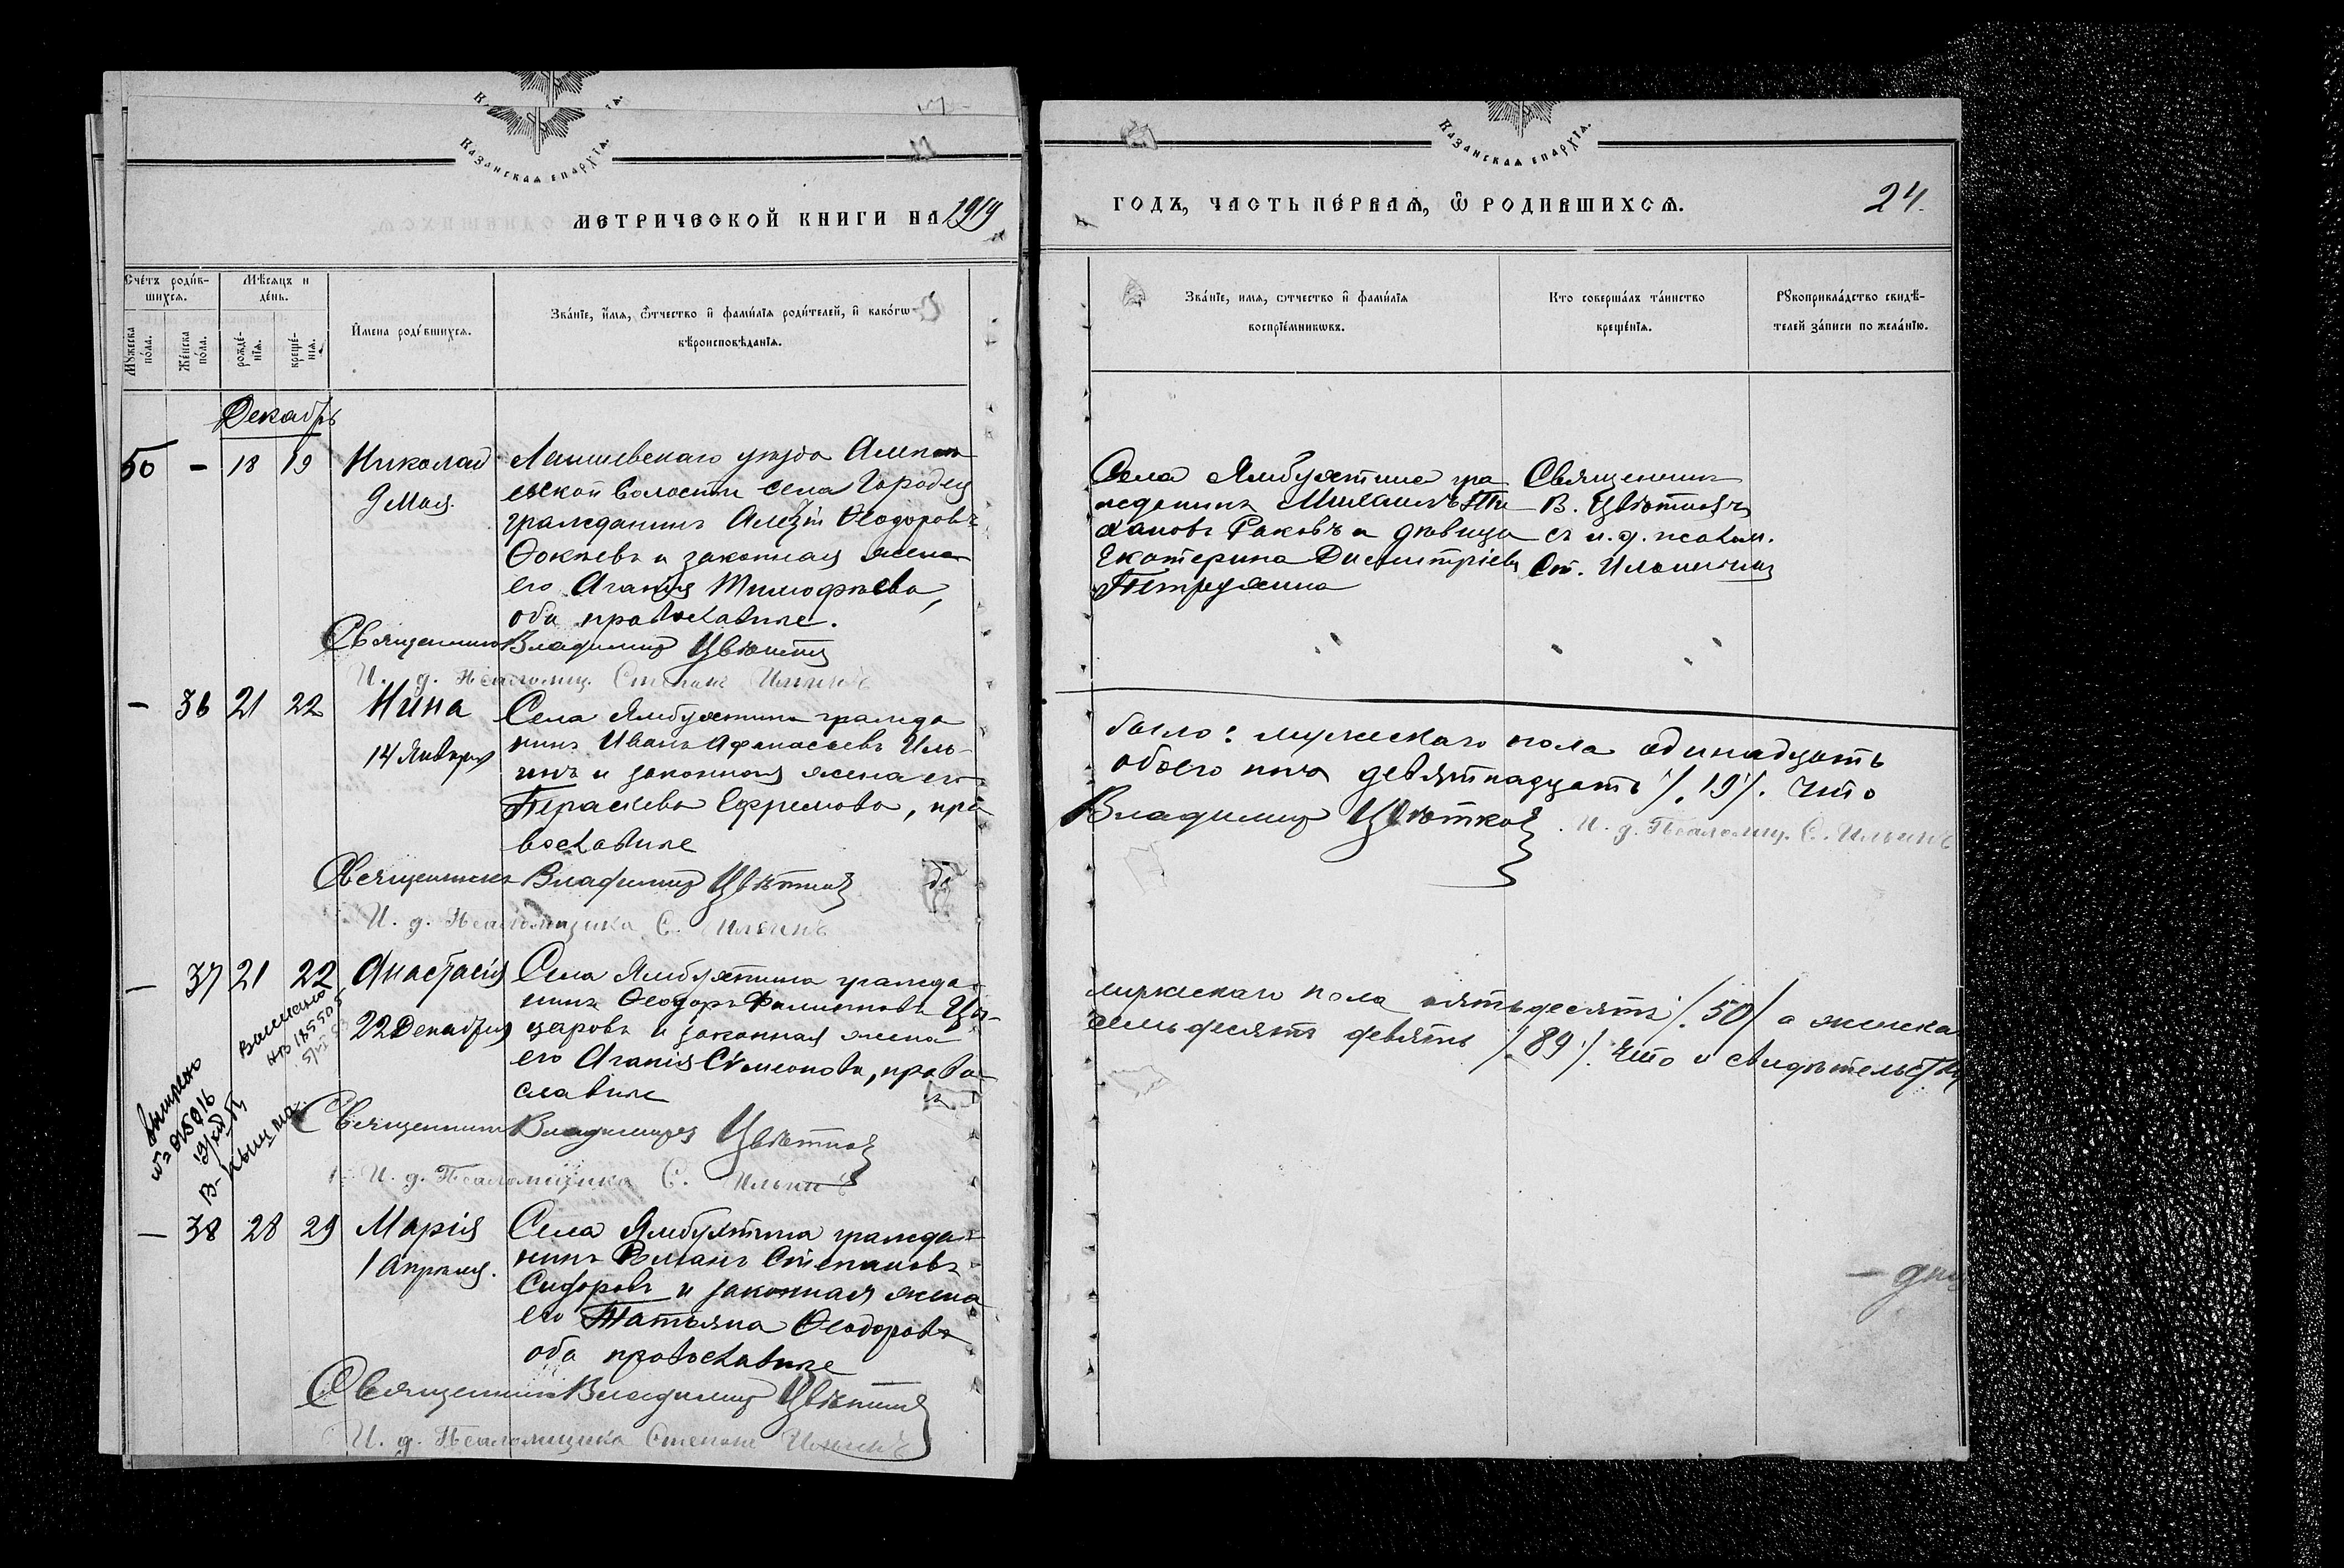 КАЗАНСКАЯ ЕПАРХІЯ.
МЕТРИЧЕСКОЙ КНИГИ НА 1919
Счетъ родив-
шихся.
Мужеска
пола.
Женска
пола.
Мѣсяцъ и
день.
рожде-
нія.
креще-
нія.
Имена родившихся.
Званіе, имя, отчество и фамилія родителей, и какогѡ
вѣроисповѣданія.
Декабрь
50 - 18 19 Николай
9 Мая.
Лаишевскаго уѣзда
волости села Городец
гражданинъ Алексѣй Ѳеодоровъ
и законная жена
его Агапія Тимофѣева,
оба православные.
Священникъ Владимиръ Цвѣтков
И. д. Псаломщ. Степанъ Ильинъ
- 36 21 22 Нина
14 Января
Села Ямбухтина гражда
нинъ Иванъ Афанасьевъ Иль-
инъ и законная жена его
Параскева Ефремова, пра
вославные
Священникъ Владимиръ Цвѣтков
И. д. Псаломщика С. Ильинъ
- 37 21 22 Анастасія
22 Декабря
Села Ямбухтина гражда-
нинъ Ѳеодоръ
и законная жена
его Агапія Сѵмеонова, право
славные
Священникъ Владимиръ Цвѣтков
И. д. Псаломщика С. Ильинъ
- 38 28 29 Марія
1 Апрѣля.
Села Ямбухтина гражда-
нинъ Романъ Степановъ
Сидоровъ и законная жена
его Татьяна Ѳеодорова
оба православные
Священникъ Владимиръ Цвѣтков
И. д. Псаломщика Степанъ Ильинъ
КАЗАНСКАЯ ЕПАРХІЯ.
ГОДЪ, ЧАСТЬ ПЕРВАЯ, Ѡ РОДИВШИХСЯ.
24.
Званіе, имя, отчество и фамилія
воспріемниковъ.
Кто совершалъ таинство
крещенія.
Рукоприкладство свидѣ-
телей записи по желанію.
Села Ямбухтина гра
жданинъ Михаилъ Ти
хановъ Раковъ и дѣвица
Екатерина Димитріева
Петрухина
Священникъ
В. Цвѣтковъ
съ и. д. псалом.
Ст. Ильинымъ
было: мужескаго пола одинадцать
обоего пола девятнадцать /. 19 /. Что
Владимиръ Цвѣтков
И. д. Псаломщ. С. Ильинъ
мужескаго пола пятьдесятъ /. 50 / а женска
семьдесятъ девять /. 89 /. Что и свидѣтельству